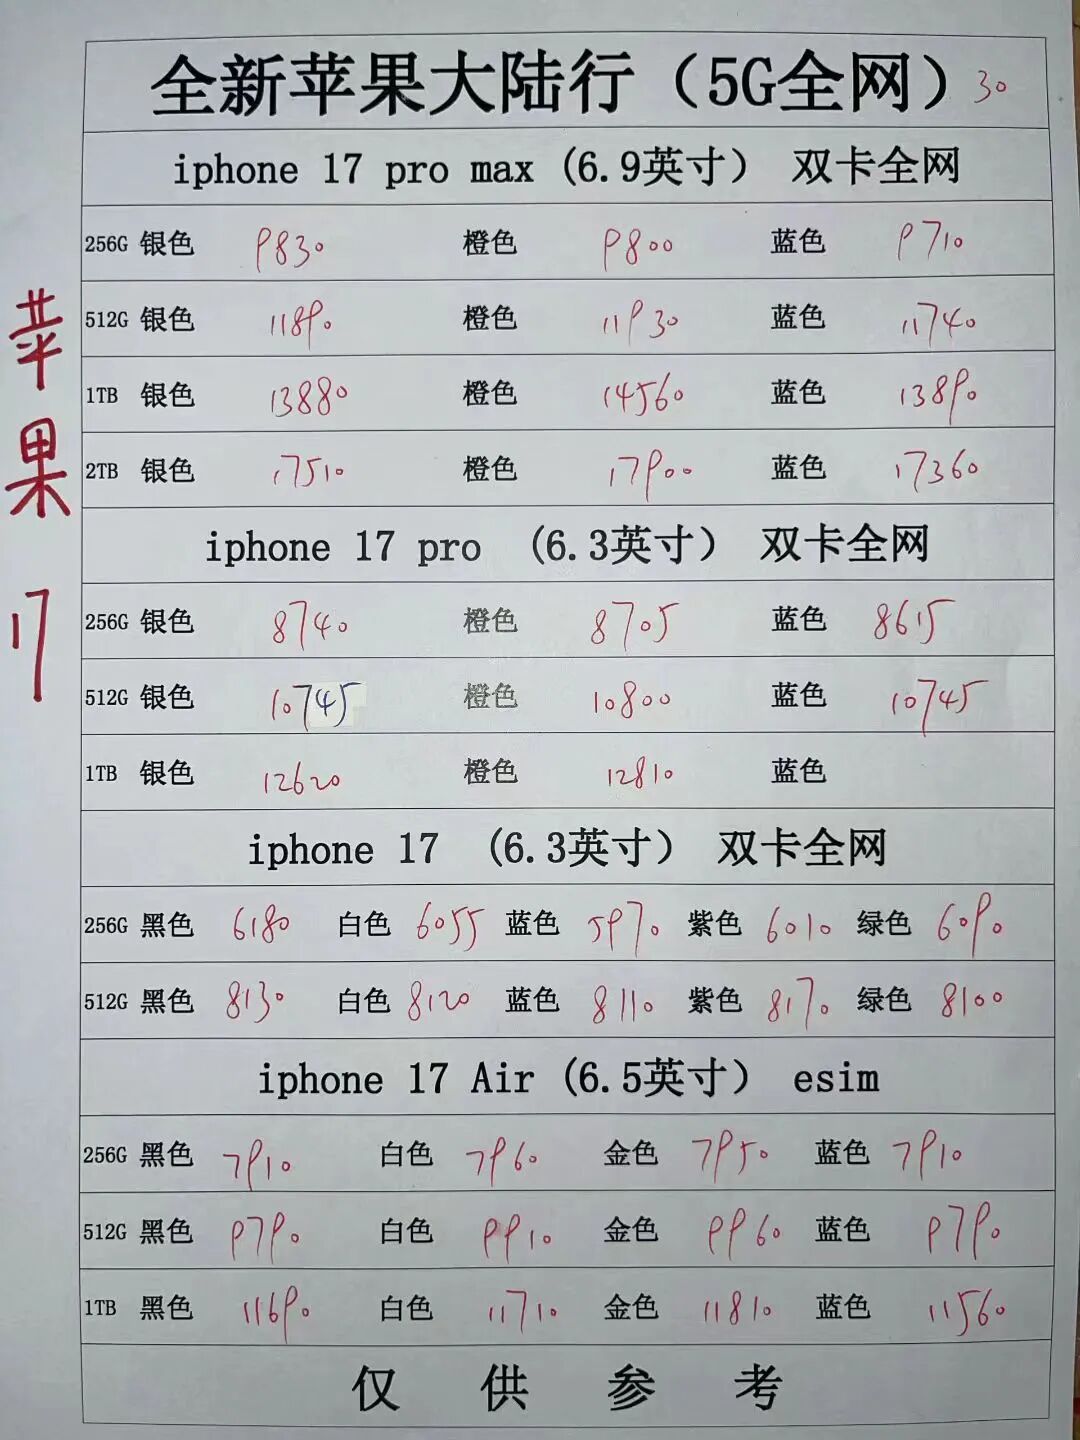 全新苹果大陆行（5G全网）30
iphone 17 pro max (6.9英寸） 双卡全网
256G 银色 9830 橙色 9800 蓝色 9710
512G 银色 11890 橙色 11930 蓝色 11740
1TB 银色 13880 橙色 14560 蓝色 13890
2TB 银色 17510 橙色 17900 蓝色 17360
iphone 17 pro （6.3英寸） 双卡全网
256G 银色 8740 橙色 8705 蓝色 8615
512G 银色 10745 橙色 10800 蓝色 10745
1TB 银色 12620 橙色 12810 蓝色
iphone 17 （6.3英寸） 双卡全网
256G 黑色 6180 白色 6055 蓝色 5970 紫色 6010 绿色 6090
512G 黑色 8130 白色 8120 蓝色 8110 紫色 8170 绿色 8100
iphone 17 Air (6.5英寸） esim
256G 黑色 7910 白色 7960 金色 7950 蓝色 7910
512G 黑色 9790 白色 9910 金色 9960 蓝色 9790
1TB 黑色 11690 白色 11710 金色 11810 蓝色 11560
仅供参考
苹果17